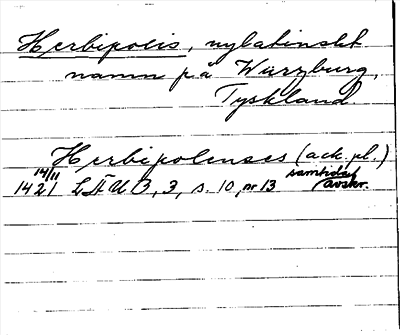 Herbipolis, nylatinskt
namn på Würzburg,
Tyskland.
Herbipolenses (ack. pl.)
14/11 1421 3, 3, s. 10, nr 13 samtida avskr.